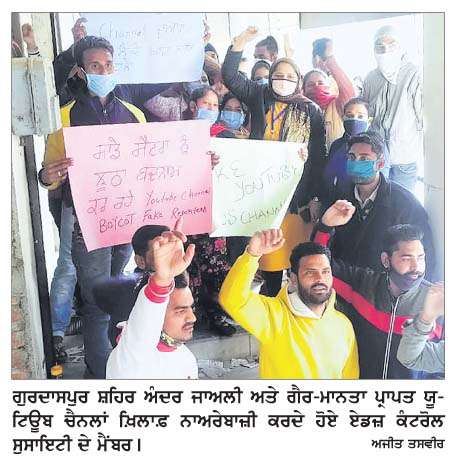 Channel
ਸਾਡੇ ਸੈਂਟਰ ਨੂੰ
ਝੂਠਾ ਬਦਨਾਮ
ਕਰ ਰਹੇ Youtube Channel
BOYCOT Fake Reporters
KE
YOUTUBE
CHANN
ਗੁਰਦਾਸਪੁਰ ਸ਼ਹਿਰ ਅੰਦਰ ਜਾਅਲੀ ਅਤੇ ਗੈਰ-ਮਾਨਤਾ ਪ੍ਰਾਪਤ ਯੂ-
ਟਿਊਬ ਚੈਨਲਾਂ ਖ਼ਿਲਾਫ਼ ਨਾਅਰੇਬਾਜ਼ੀ ਕਰਦੇ ਹੋਏ ਏਡਜ਼ ਕੰਟਰੋਲ
ਸੁਸਾਇਟੀ ਦੇ ਮੈਂਬਰ।
ਅਜੀਤ ਤਸਵੀਰ